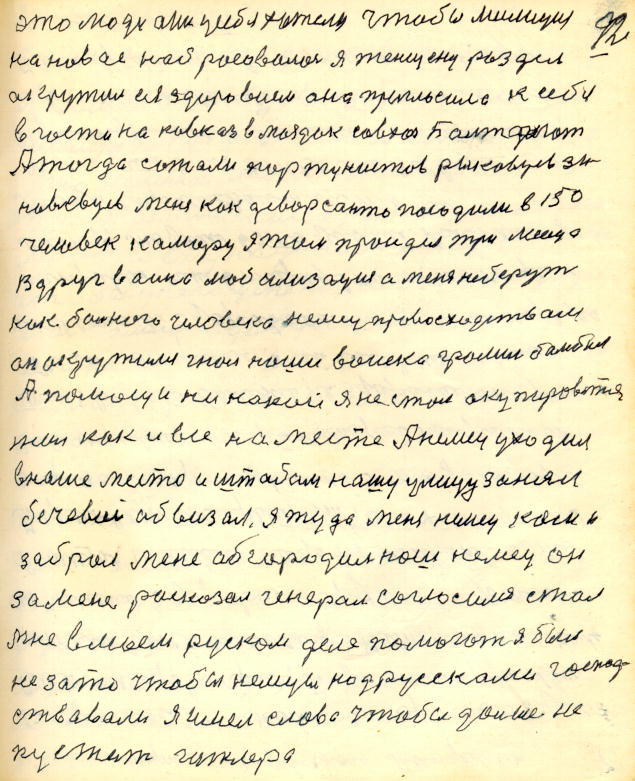 это люди они хотели чтобы милиция 92
на новае набросовалоя я женщену раздел
акружил ея здоровием она прегласила к себи
в гости на кавказ в маздок совхоз
А тогда сажали партунистов рыковцев зи-
новевцев меня как диворсанта посадили в 150
человек камару я там проидел три месеца
вдруг ваина мобализацыя а меня неберут
как бомного человека немец провосходством
он акружил гнал наши воиска громил бамбил
А помощи ни какой я не стал акупироватся
жил как и все на месте А немец уходил
в наше место и штабам нашу улицу занял
бечовой абвизал, я туда меня немец
забрал мене абгородил наш немец он
за мене расказал генерал согласился стал
мне в моем руском деле помогат я был
не зато чтобы немцы над руссками господ-
ствавали Я имел слова чтобы дальше не
пустит гитлера